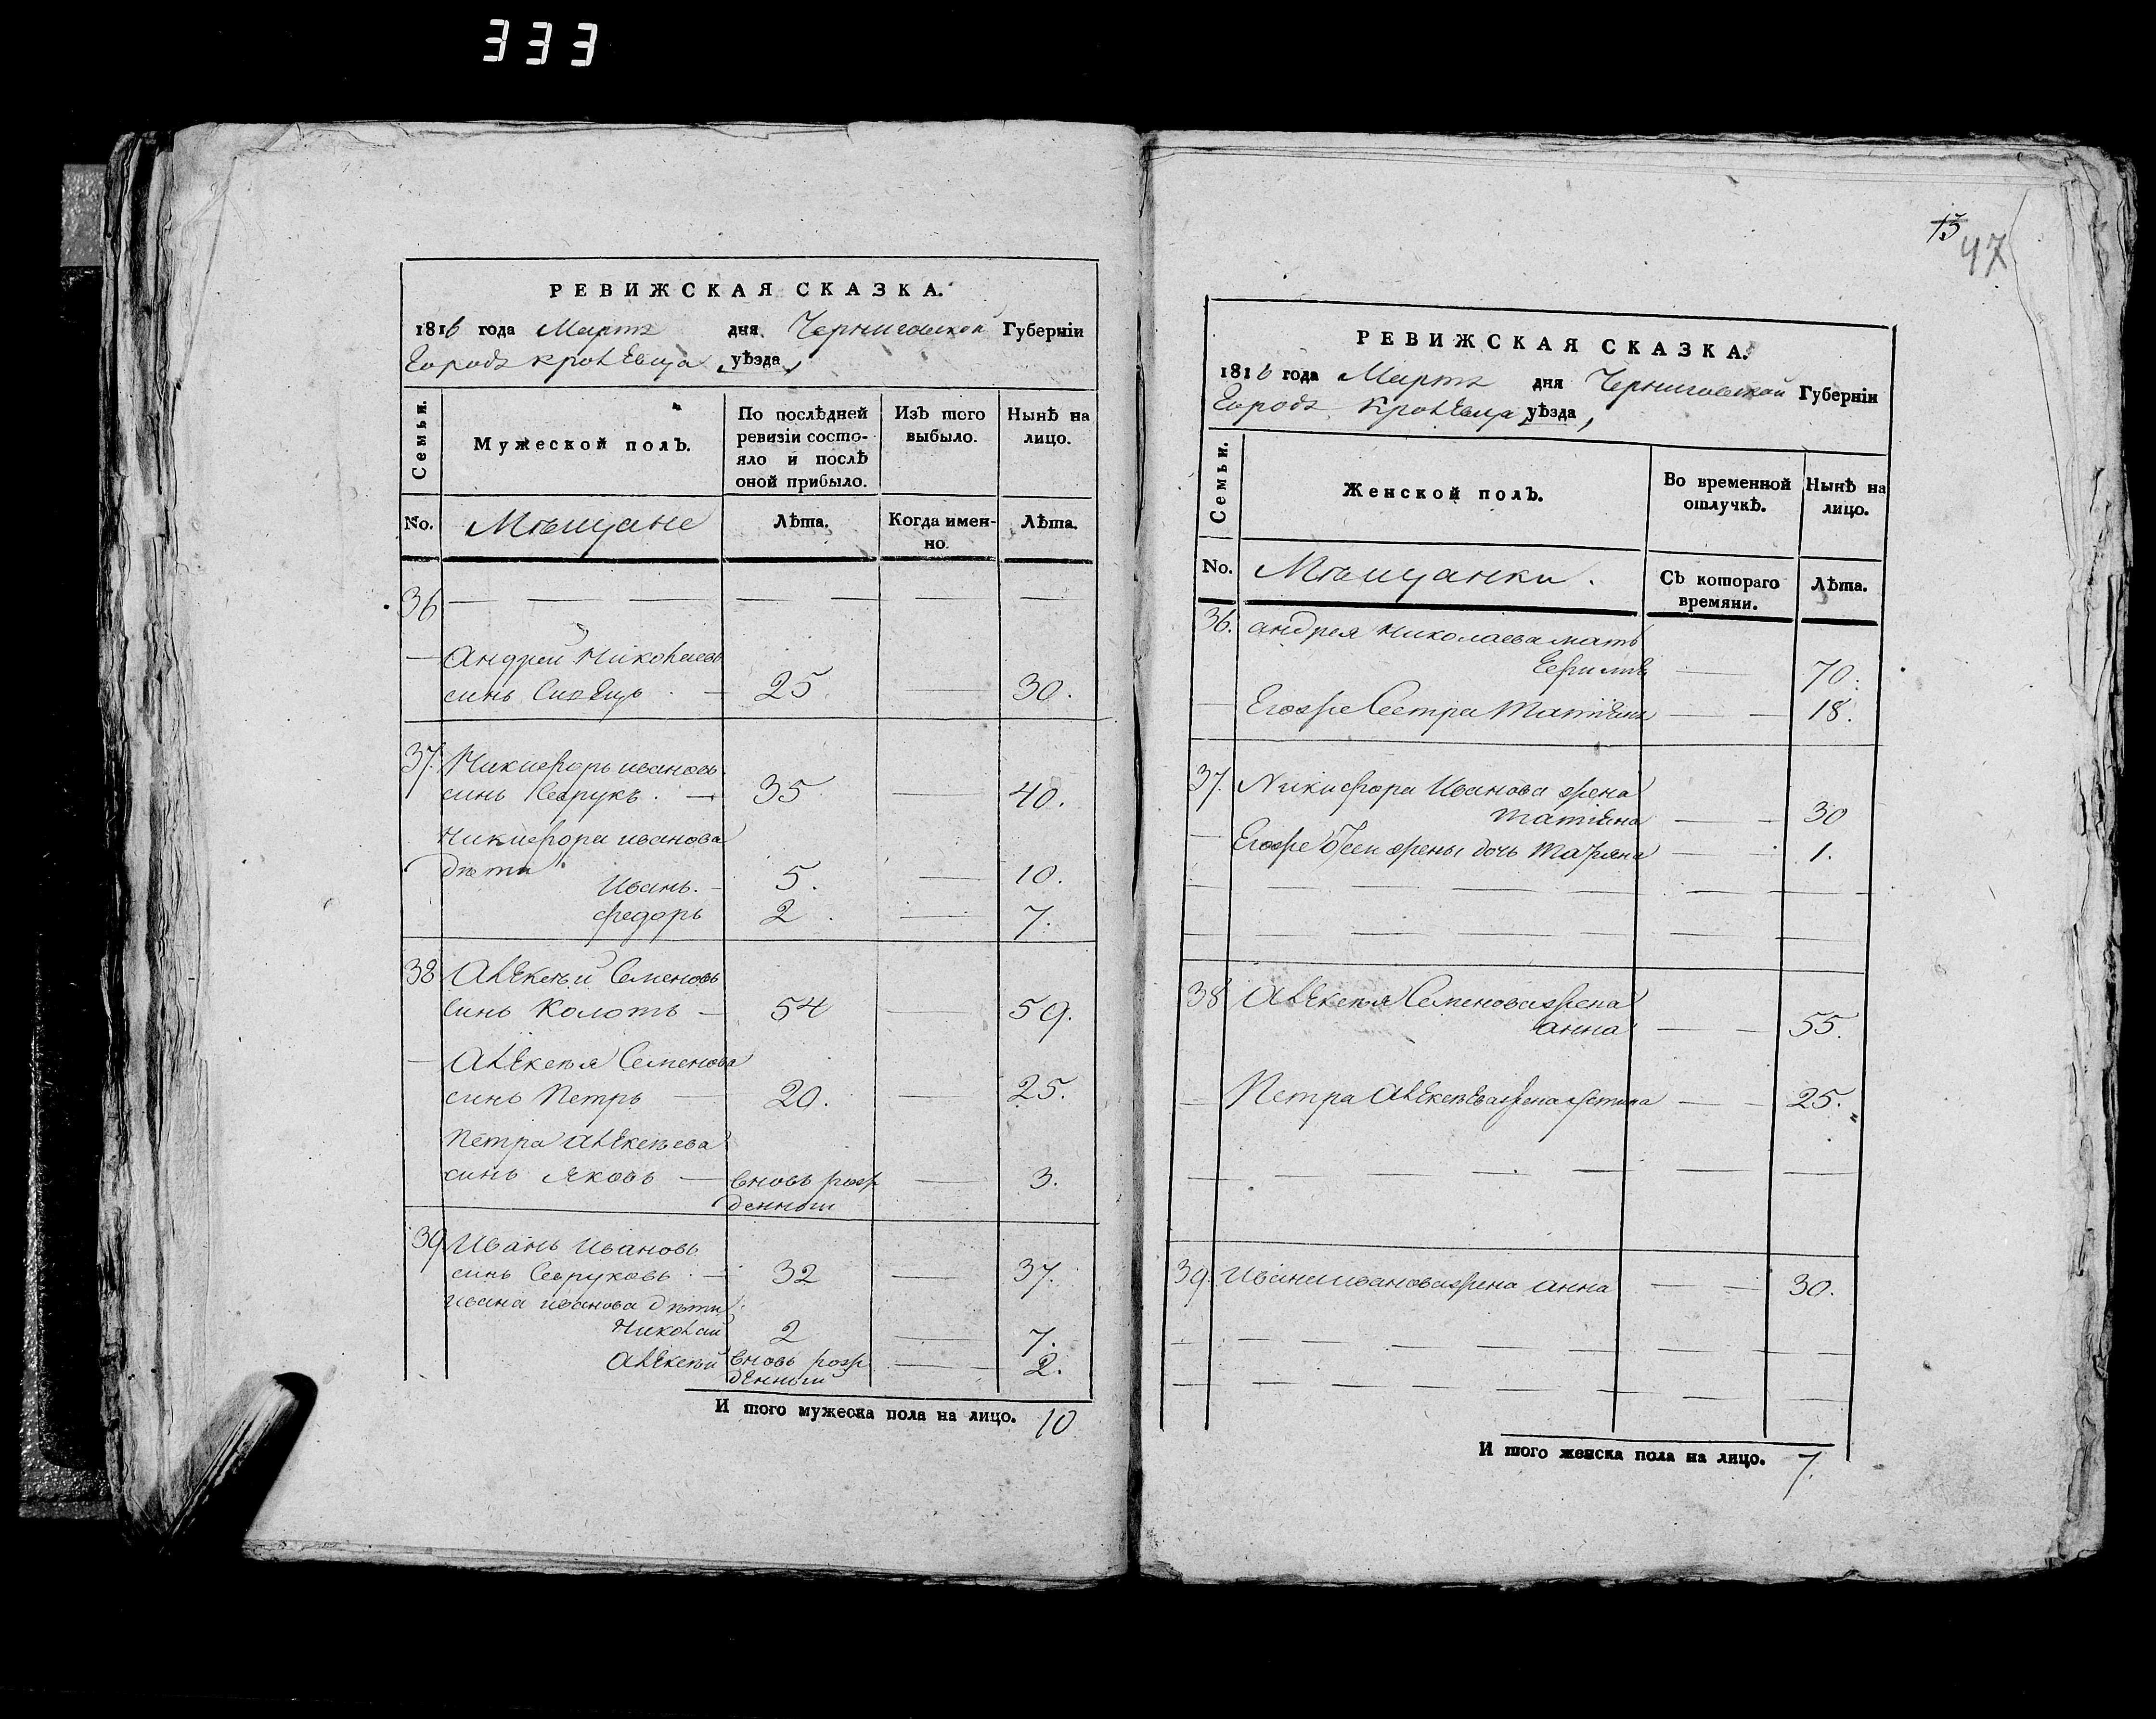 333
РЕВИЖСКАЯ СКАЗКА.
1816 года Марта дня Черниговской Губерніи
Города Кролевца уѣзда,
Семьи.
Мужеской полъ.
По послѣдней ревизіи состо-
яло и послѣ
оной прибыло.
Изъ того
выбыло.
Нынѣ на
лицо.
No.
Мѣщане
Лѣта.
Когда имен-
но.
Лѣта.
36
Андрей Николаевъ
синъ 25. 30.
37. Никифоръ ивановъ
синъ Севрукъ. 35 40.
Никифора иванова
дѣти
Иванъ. 5. 10.
федоръ 2. 7.
38 Алексѣй Семеновъ
Синъ Колотъ 54 59.
Алексѣя Семенова
синъ Петръ 20. 25.
Петра Алексѣева
синъ Яковъ вновь рож 3.
денной
39 Иванъ Ивановъ
синъ Севруковъ. 32 37.
ивана иванова дѣти
Николай 2 7.
Алексѣй вновь рож 2.
денной
И того мужеска пола на лицо. 10
15
47
РЕВИЖСКАЯ СКАЗКА.
1816 года Марта дня Черниговской Губерніи
Города Кролевца уѣзда,
Семьи.
Женской полъ.
Во временной
отлучкѣ.
Нынѣ на
лицо.
No.
Мѣщанки.
Съ котораго
времяни.
Лѣта.
36. андрея Николаева мать
70.
Егоже Сестра Татіяна 18.
37. Никифора Иванова жена
татіяна 30
Егоже жены дочь 1.
38 Алексѣя Семенова жена
анна 55.
Петра Алексѣева жена 25.
39. Ивана иванова жена анна 30.
И того женска пола на лицо. 7.